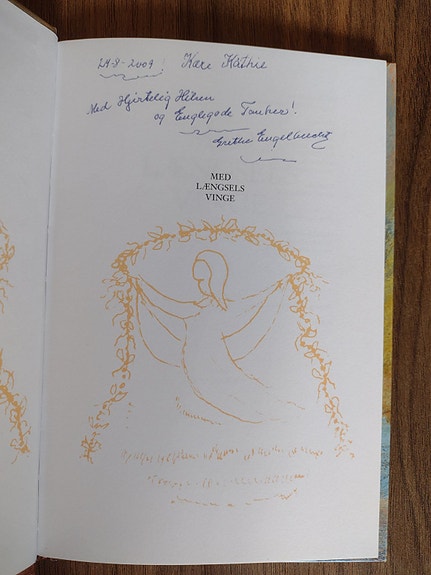 24-8-2009! Kære Käthie
Med Hjertelig Hilsen
og Englegode Tanker!
Grethe Engelbrecht
MED
LÆNGSELS
VINGE